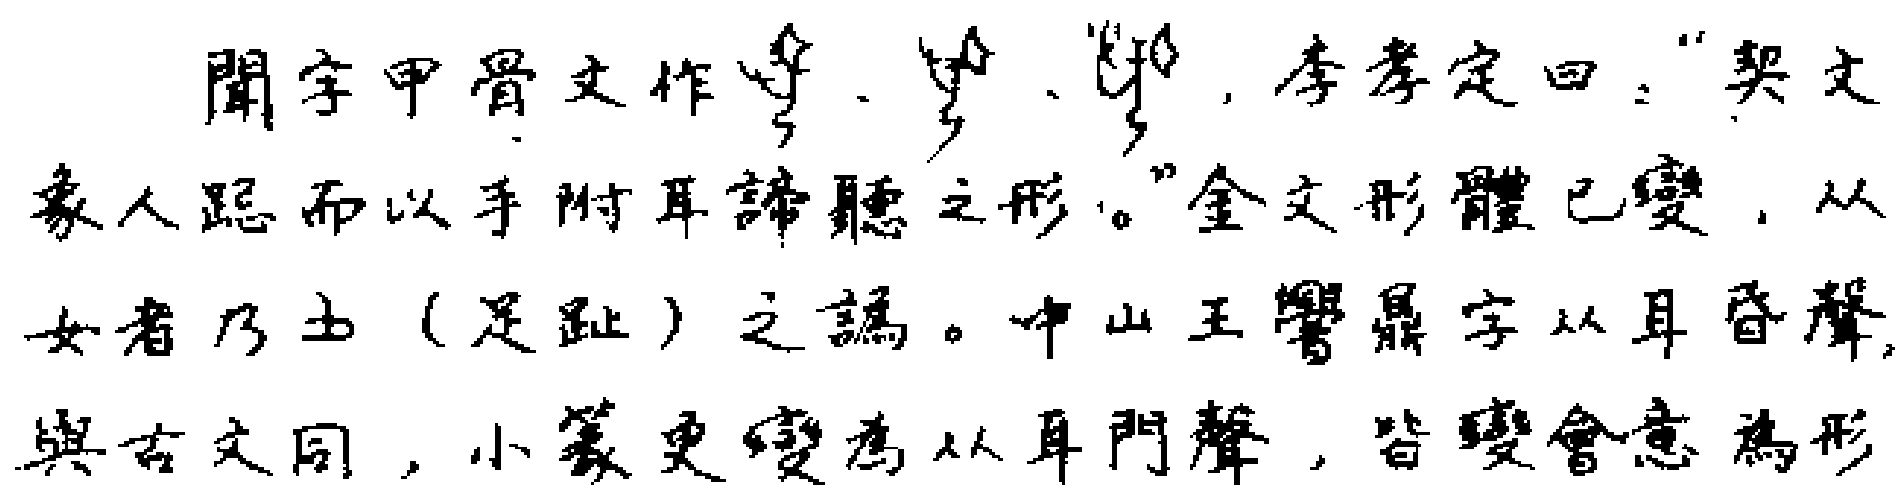 聞字甲骨文作、、，李孝定曰："契文
象人跽而以手附耳諦聽之形。"金文形體已變，从
女者乃（足趾）之譌。中山王鼎字从耳昏聲，
與古文同，小篆更變為从耳門聲，皆變會意為形